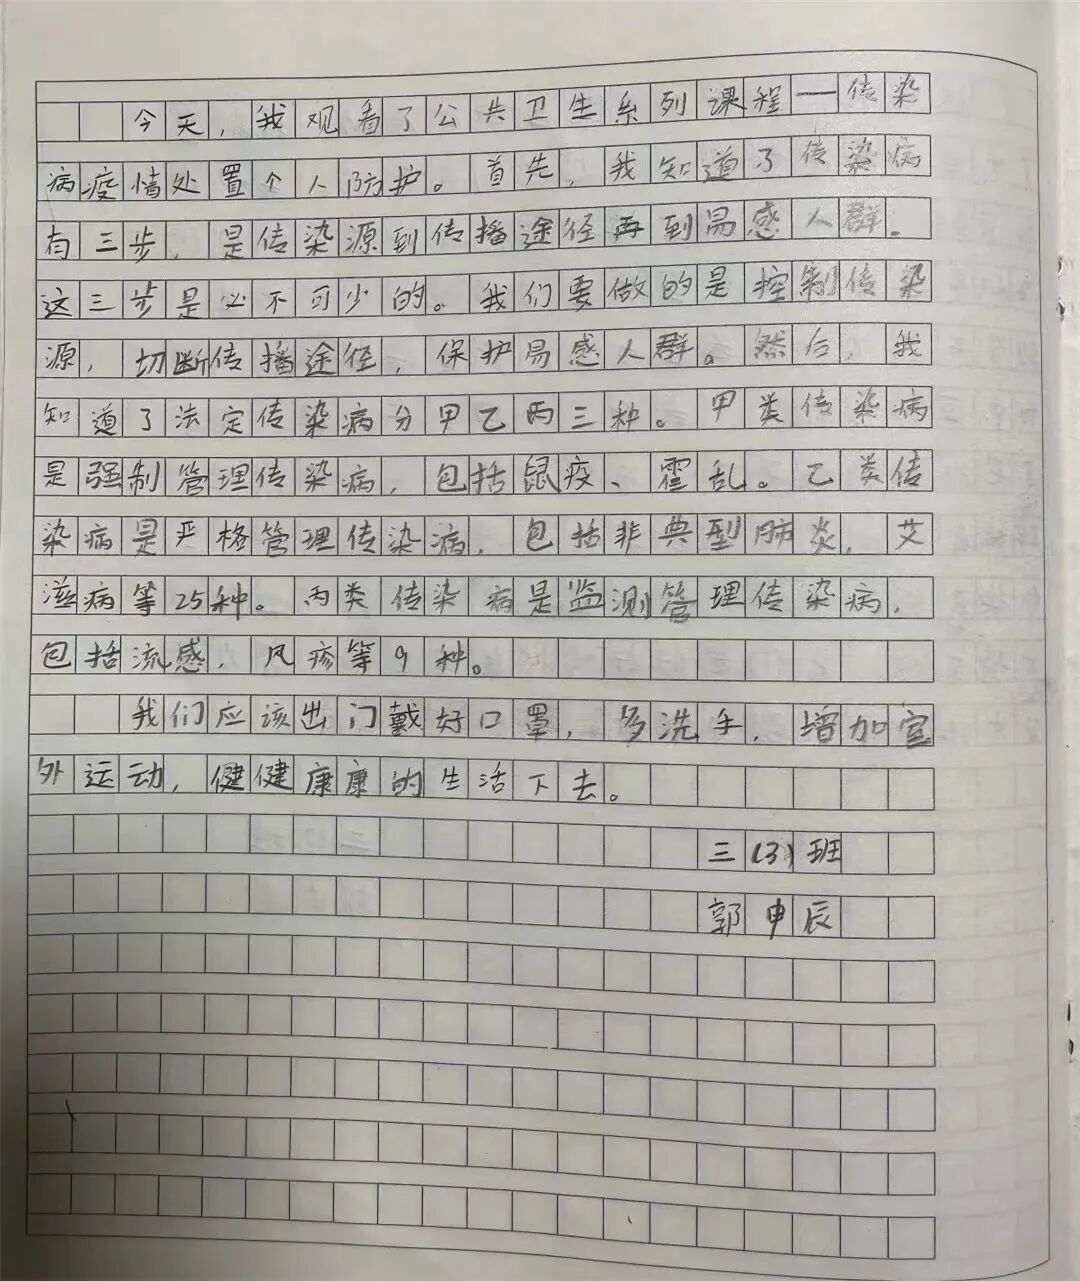 今天，我观看了公共卫生系列课程—传染
病疫情处置个人防护。首先，我知道了传染病
有三步，是传染源到传播途径再到易感人群。
这三步是必不可少的。我们要做的是控制传染
源，切断传播途径，保护易感人群。然后，我
知道了法定传染病分甲乙丙三种。甲类传染病
是强制管理传染病，包括鼠疫、霍乱。乙类传
染病是严格管理传染病，包括非典型肺炎，艾
滋病等25种。丙类传染病是监测管理传染病，
包括流感，风疹等9种。
我们应该出门戴好口罩，多洗手，增加室
外运动，健健康康的生活下去。
三(3)班
郭申辰